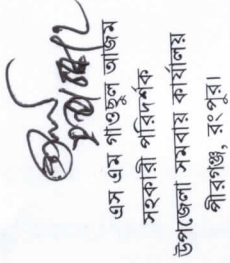 এস এম গাওছুল আজম
সহকারী পরিদর্শক
উপজেলা সমবায় কার্যালয়
পীরগঞ্জ, রংপুর।